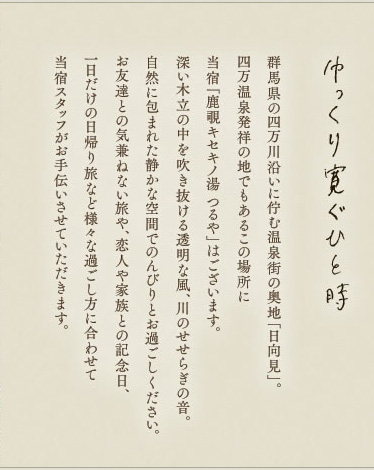 ゆっくり寛ぐひと時
群馬県の四万川沿いに佇む温泉街の奥地「日向見」。
四万温泉発祥の地でもあるこの場所に
当宿『鹿覗キセキノ湯 つるや』はございます。
深い木立の中を吹き抜ける透明な風、川のせせらぎの音。
自然に包まれた静かな空間でのんびりとお過ごしください。
お友達との気兼ねない旅や、恋人や家族との記念日、
一日だけの日帰り旅など様々な過ごし方に合わせて
当宿スタッフがお手伝いさせていただきます。